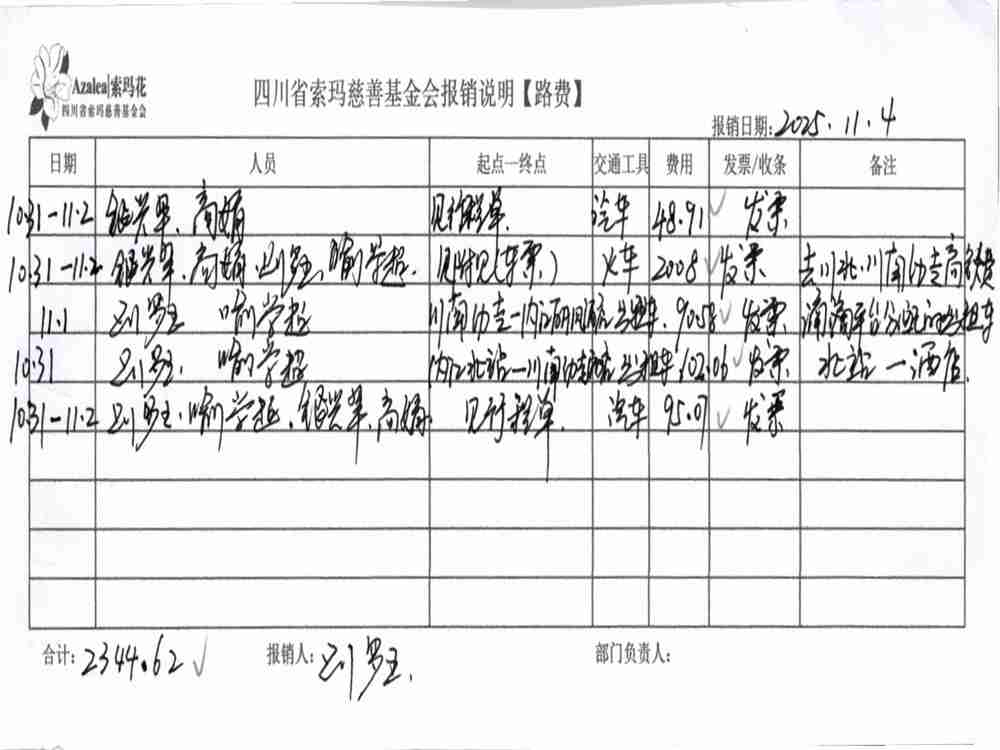 Azalea|索玛花
四川省索玛慈善基金会
四川省索玛慈善基金会报销说明【路费】
报销日期:2025.11.4
日期 人员 起点一终点 交通工具 费用 发票/收条 备注
10.31-11.2 高娟 见行程单. 汽车 48.91 发票
10.31-11.2 高娟 喻学超. 见附见(车票) 火车 2008 发票 去川北.川南幼专高铁费
11.1 喻学超 川南幼专一内江 出租车. 90.58 发票 滴滴平台分配的出租车
10.31 喻学超 内江北站一川南幼专 出租车 102.06 发票 北站一酒店.
10.31-11.2 喻学超. 高娟 见行程单. 汽车 95.07 发票
合计: 2344.62 报销人: 部门负责人: